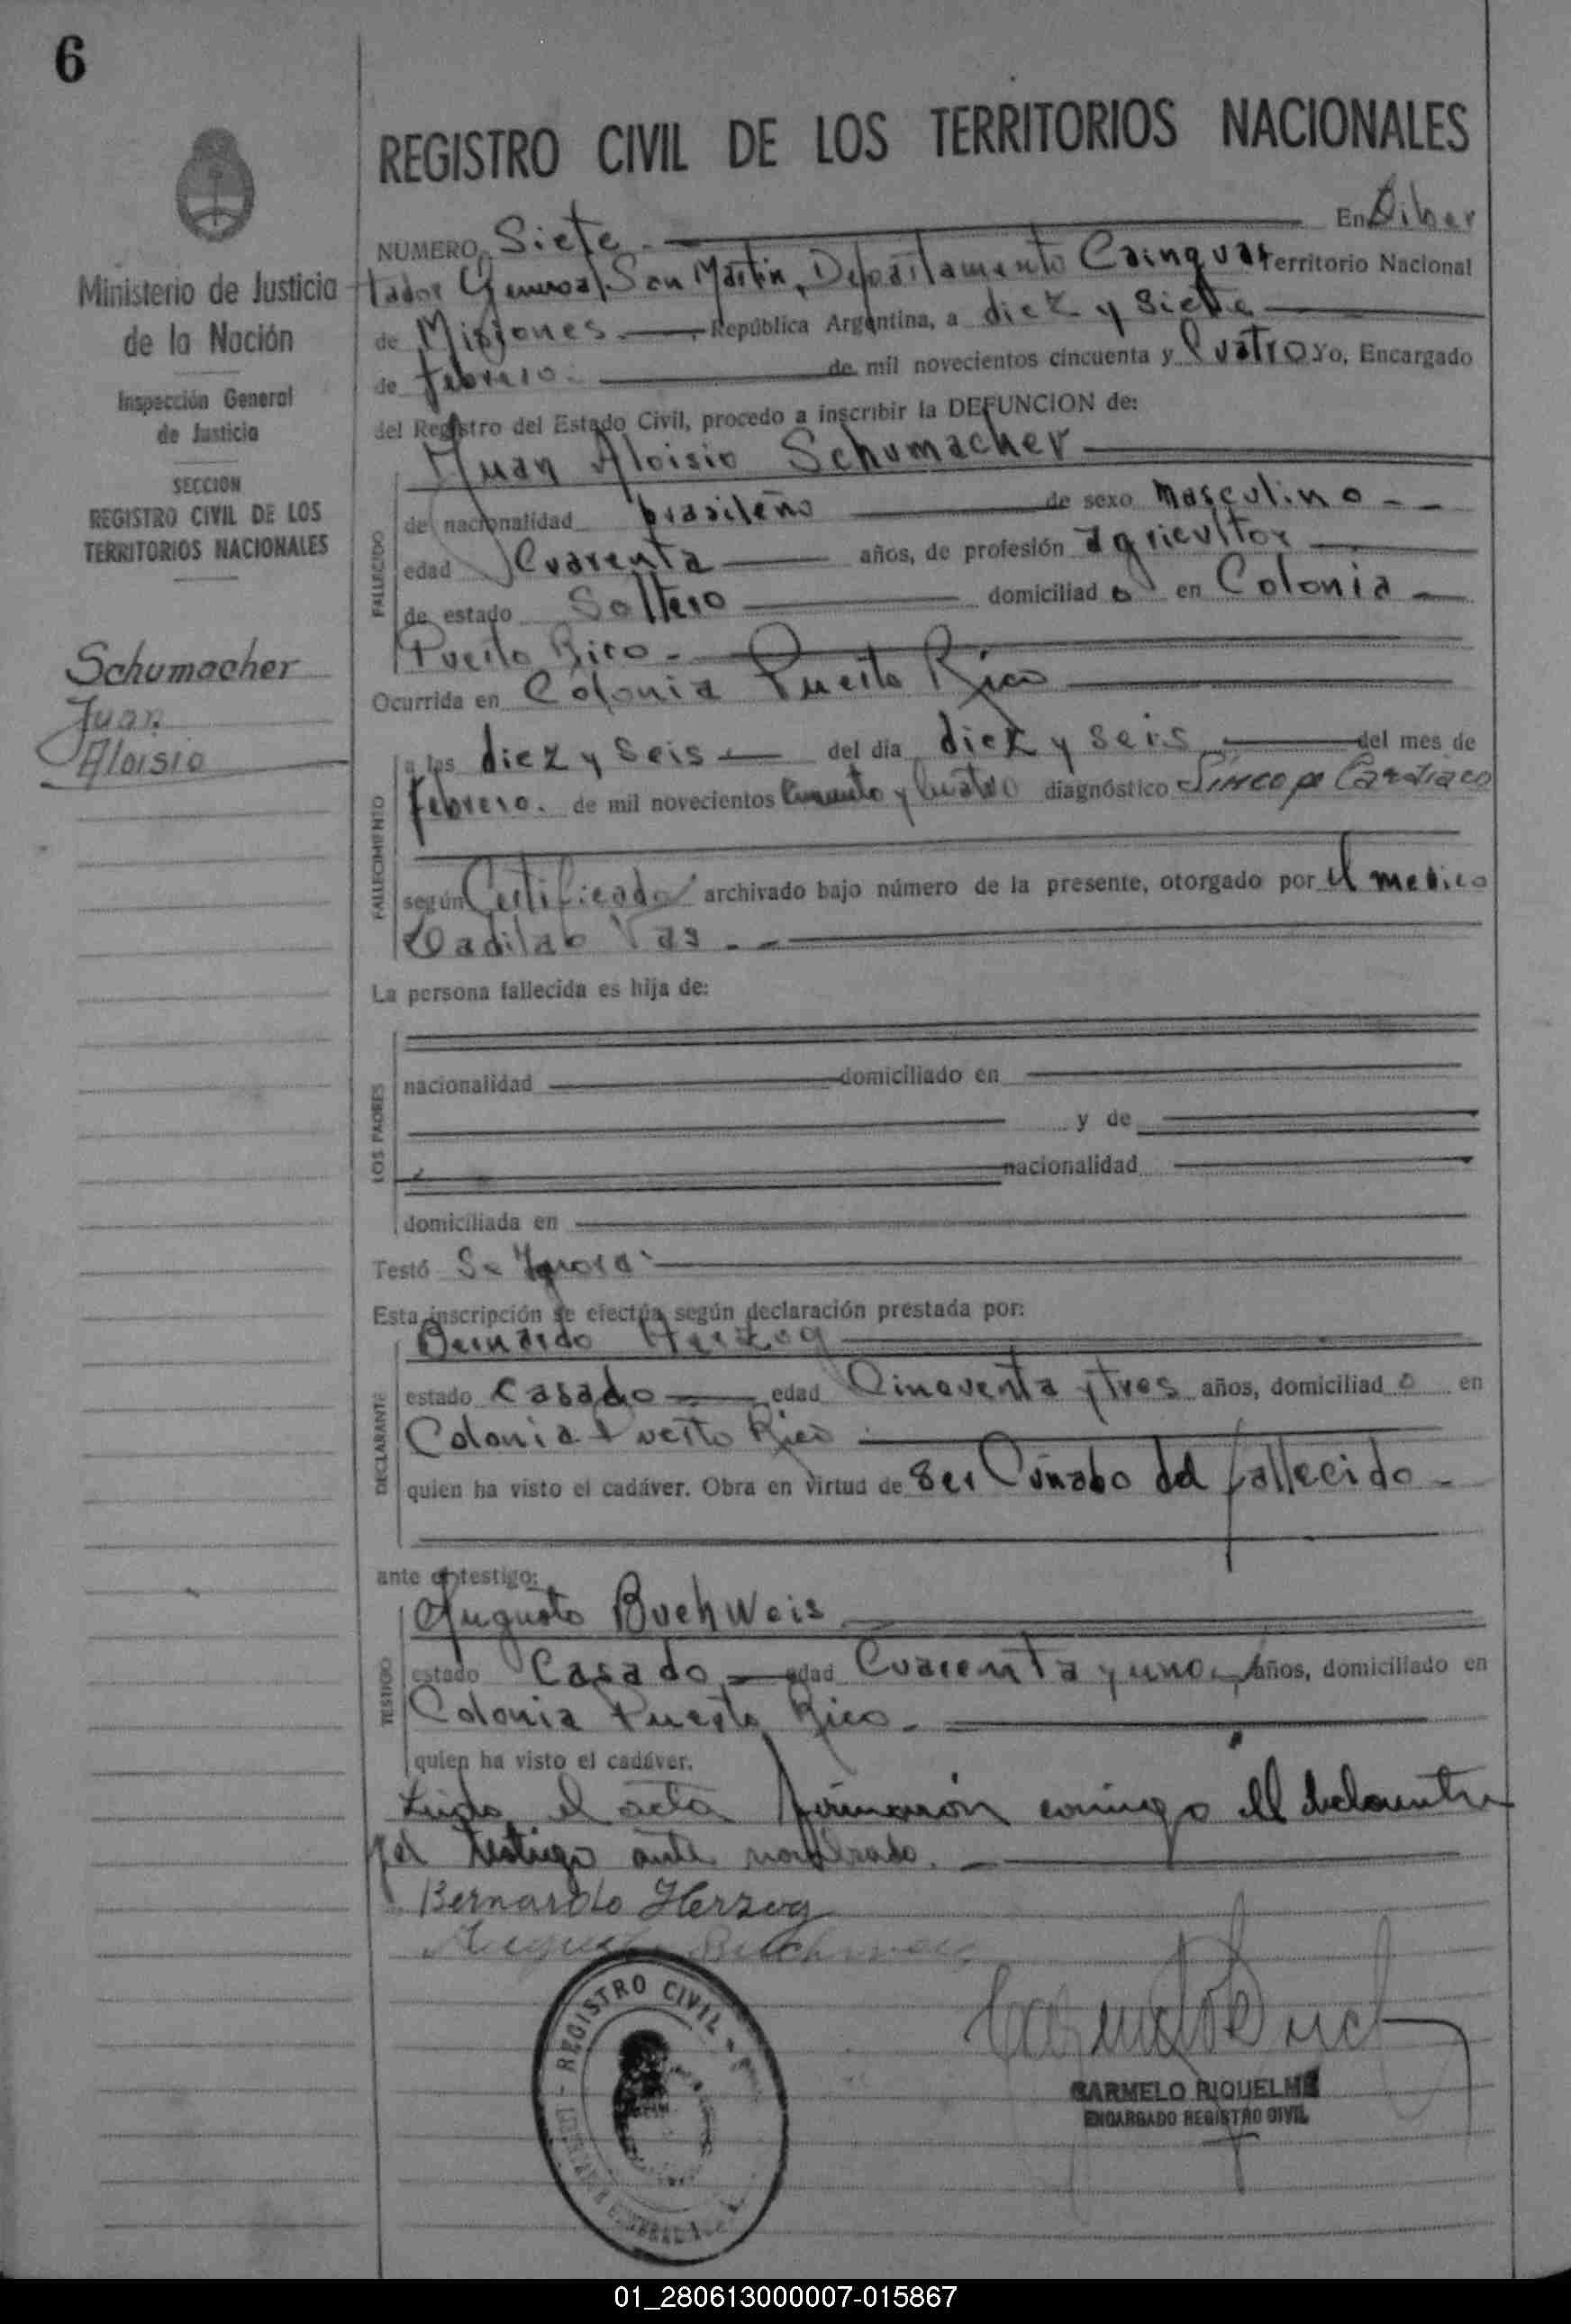 6
Ministerio de Justicia
de la Nación
Inspección General
de Justicia
SECCION
REGISTRO CIVIL DE LOS
TERRITORIOS NACIONALES
Schumacher
Juan
Aloisio
REGISTRO CIVIL DE LOS TERRITORIOS NACIONALES
NUMERO Siete.- En Liber
tador General San Martín, Departamento Cainguas Territorio Nacional
de Misiones. República Argentina, a diez y siete
de febrero. de mil novecientos cincuenta y Cuatro Yo, Encargado
del Registro del Estado Civil, procedo a inscribir la DEFUNCION de:
Juan Aloisio Schumacher
FALLECIDO
de nacionalidad brasileño de sexo masculino - -
edad Cuarenta años, de profesión agricultor
de estado Soltero domiciliad o en Colonia
Puerto Rico.-
Ocurrida en Colonia Puerto Rico
FALLECIMIENTO
a las diez y seis del día diez y seis del mes de
febrero. de mil novecientos cincuenta y cuatro diagnóstico Sincope Cardiaco
según Certificado archivado bajo número de la presente, otorgado por el medico
Ladilao Vas. -
La persona fallecida es hija de:
LOS PADRES
nacionalidad domiciliado en
y de
nacionalidad
domiciliada en
Testó Se Ignora
Esta inscripción se efectúa según declaración prestada por:
Bernardo Herzog
DECLARANTE
estado Casado edad Cincuenta y tres años, domiciliad o en
Colonia Puerto Rico
quien ha visto el cadáver. Obra en virtud de ser Cuñado del fallecido -
ante el testigo:
Augusto Buchweis
TESTIGO
estado Casado edad Cuarenta y uno años, domiciliado en
Colonia Puerto Rico.
quien ha visto el cadáver.
Leida el acta firmaron conmigo el declarante
y el testigo ante nombrado.
Bernardo Herzog
REGISTRO CIVIL
CARMELO RIQUELME
ENCARGADO REGISTRO CIVIL
01_280613000007-015867